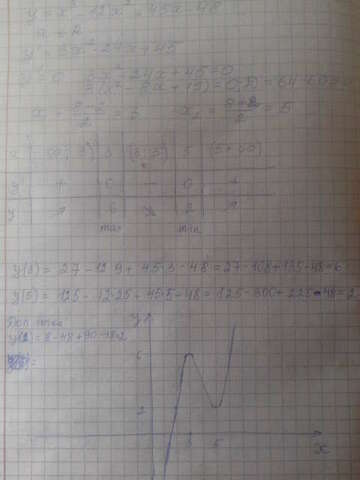 y = x³ - 12x² + 45x - 48
y' = 3x² - 24x + 45
y' = 0 3x² - 24x + 45 = 0
3(x² - 8x + 15) = 0
x₁ = (8-2)/2 = 3 x₂ = (8+2)/2 = 5
x 3 (3; 5) 5 (5; +∞)
y' + 0 - 0 +
y ↗ 6 ↘ 2 ↗
max min
y(3) = 27 - 12·9 + 45·3 - 48 = 27 - 108 + 135 - 48 = 6
y(5) = 125 - 12·25 + 45·5 - 48 = 125 - 300 + 225 - 48 = 2
y(2) = 8 - 48 + 90 - 48 = 2
y
6
2
3 5
x